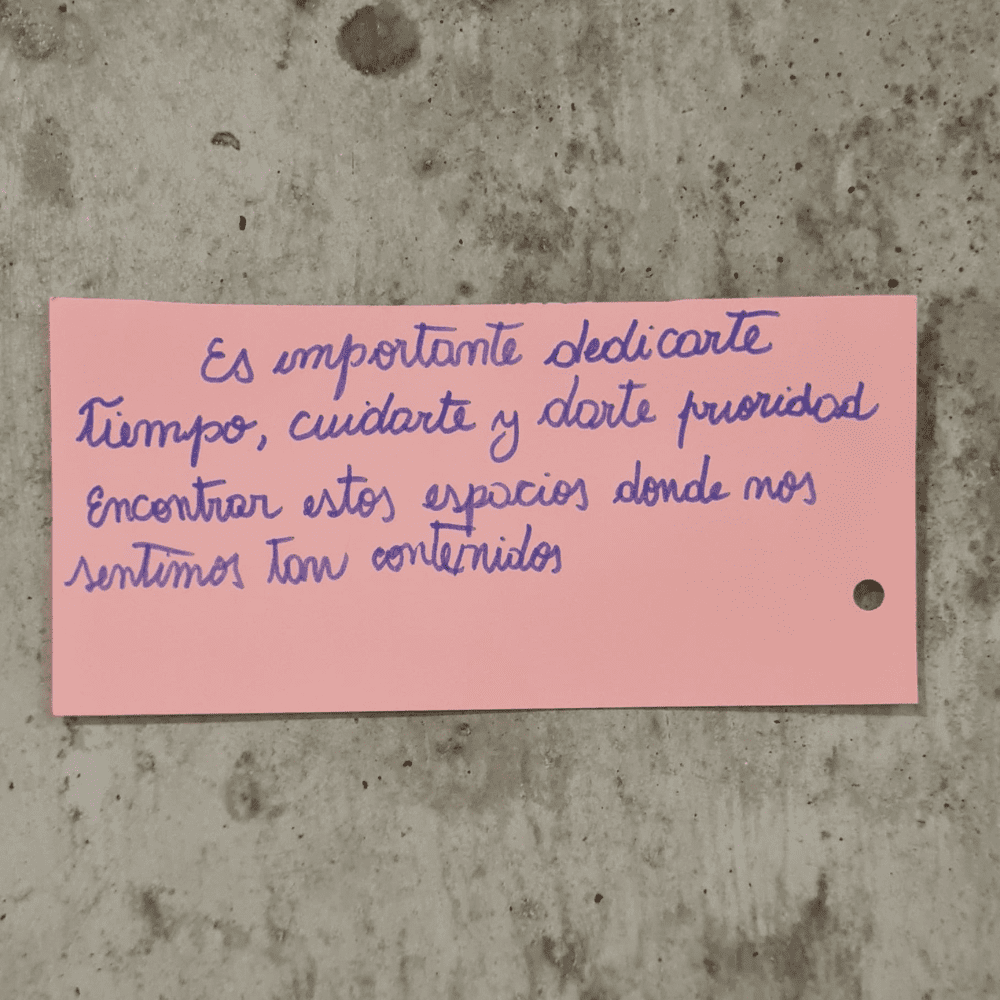 Es importante dedicarte
tiempo, cuidarte y darte prioridad
Encontrar estos espacios donde nos
sentimos tan contenidos